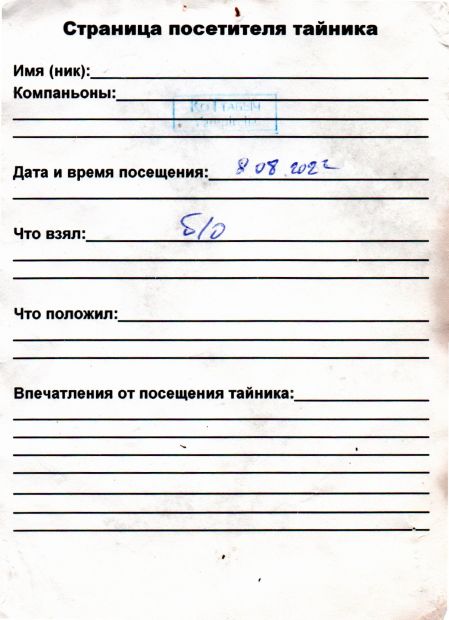 Страница посетителя тайника
Имя (ник):
Компаньоны:
КоТТабыч
Дата и время посещения: 8 08 2022
Что взял: б/о
Что положил:
Впечатления от посещения тайника: